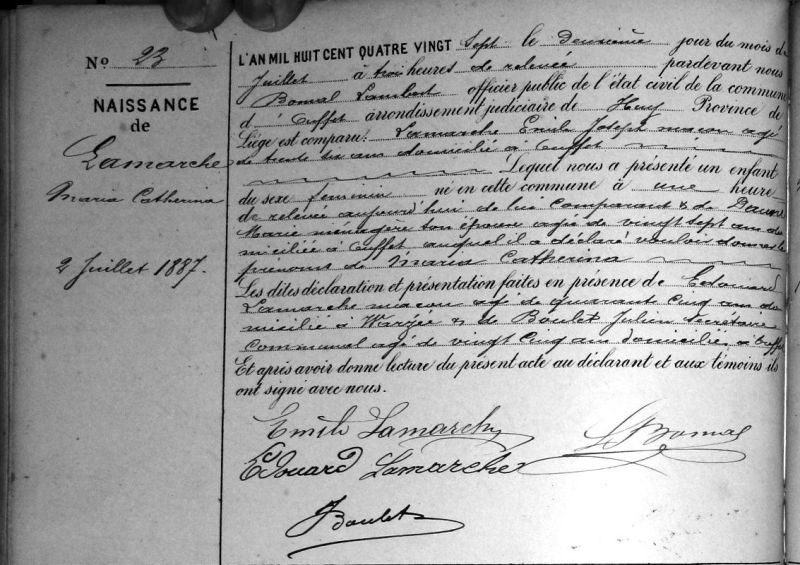 No 23
NAISSANCE
de
Lamarche
Maria Catherina
2 Juillet 1887.
L'AN MIL HUIT CENT QUATRE VINGT Sept le deuxième jour du mois de
Juillet à trois heures de relevée pardevant nous
Bomal Lambert officier public de l'état civil de la commune
d'Ouffet arrondissement judiciaire de Huy Province de
Liège est comparu: Lamarche Emile Joseph maçon agé
de trente six ans domicilié à Ouffet
Lequel nous a présenté un enfant
du sexe feminin né en cette commune à une heure
de relevée aujourd'hui de lui comparant & de
Marie ménagère son épouse agée de vingt sept ans do
miciliée à Ouffet auquel il a déclaré vouloir donner le
prenoms de Maria Catherina
Les dites déclaration et présentation faites en présence de Edouard
Lamarche maçon agé de quarant cinq ans do
micilié à Warzée & de Boulet Julien Secrétaire
Communal agé de vingt cinq ans domicilié à Ouffet
Et après avoir donné lecture du présent acte au déclarant et aux témoins ils
ont signé avec nous.
Emile Lamarche
L Bomal
Edouard Lamarche
J Boulet